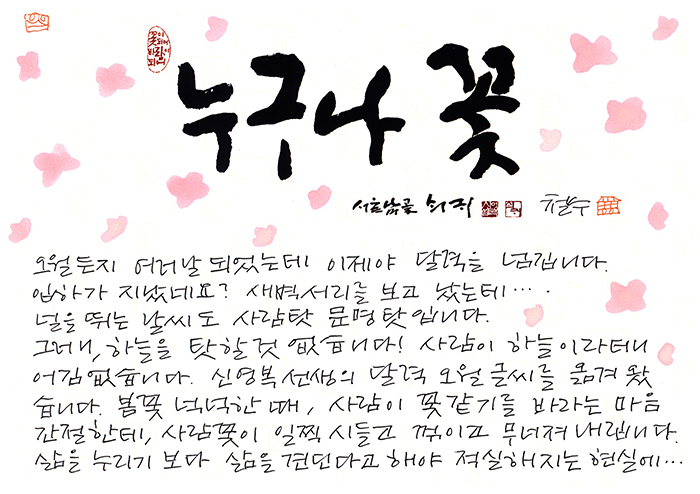 꽃이 되어 바람이 되어
누구나 꽃
쇠귀
철수
오월든지 여러날 되었는데 이제야 달력을 넘깁니다.
입하가 지났네요? 새벽서리를 보고 났는데….
널을 뛰는 날씨도 사람탓 문명탓입니다.
그러네, 하늘을 탓할것 없습니다! 사람이 하늘이라더니
어김없습니다. 신영복선생의 달력 오월 글씨를 옮겨 왔
습니다. 봄꽃 넉넉한 때, 사람이 꽃같기를 바라는 마음
간절한데, 사람꽃이 일찍 시들고 꺾이고 무너져내립니다.
삶을 누리기 보다 삶을 견딘다고 해야 적실해지는 현실에…